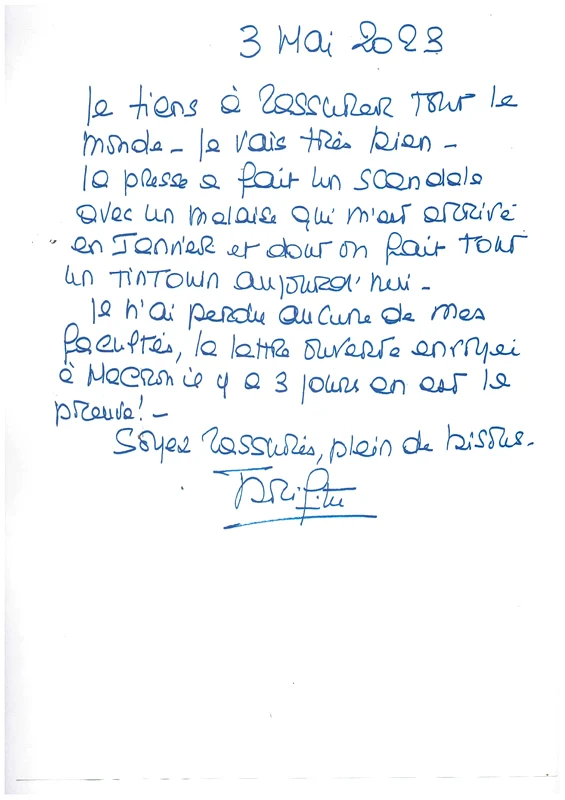 3 Mai 2023
Je tiens à rassurer tout le
monde - Je vais très bien -
La presse a fait un scandale
avec un malaise qui m'est arrivé
en Janvier et dont on fait tout
un TINTOUIN aujourd'hui -
Je n'ai perdu aucune de mes
facultés, la lettre ouverte envoyei
à Macron il y a 3 jours en est la
preuve! -
Soyez rassurés, plein de bisous.